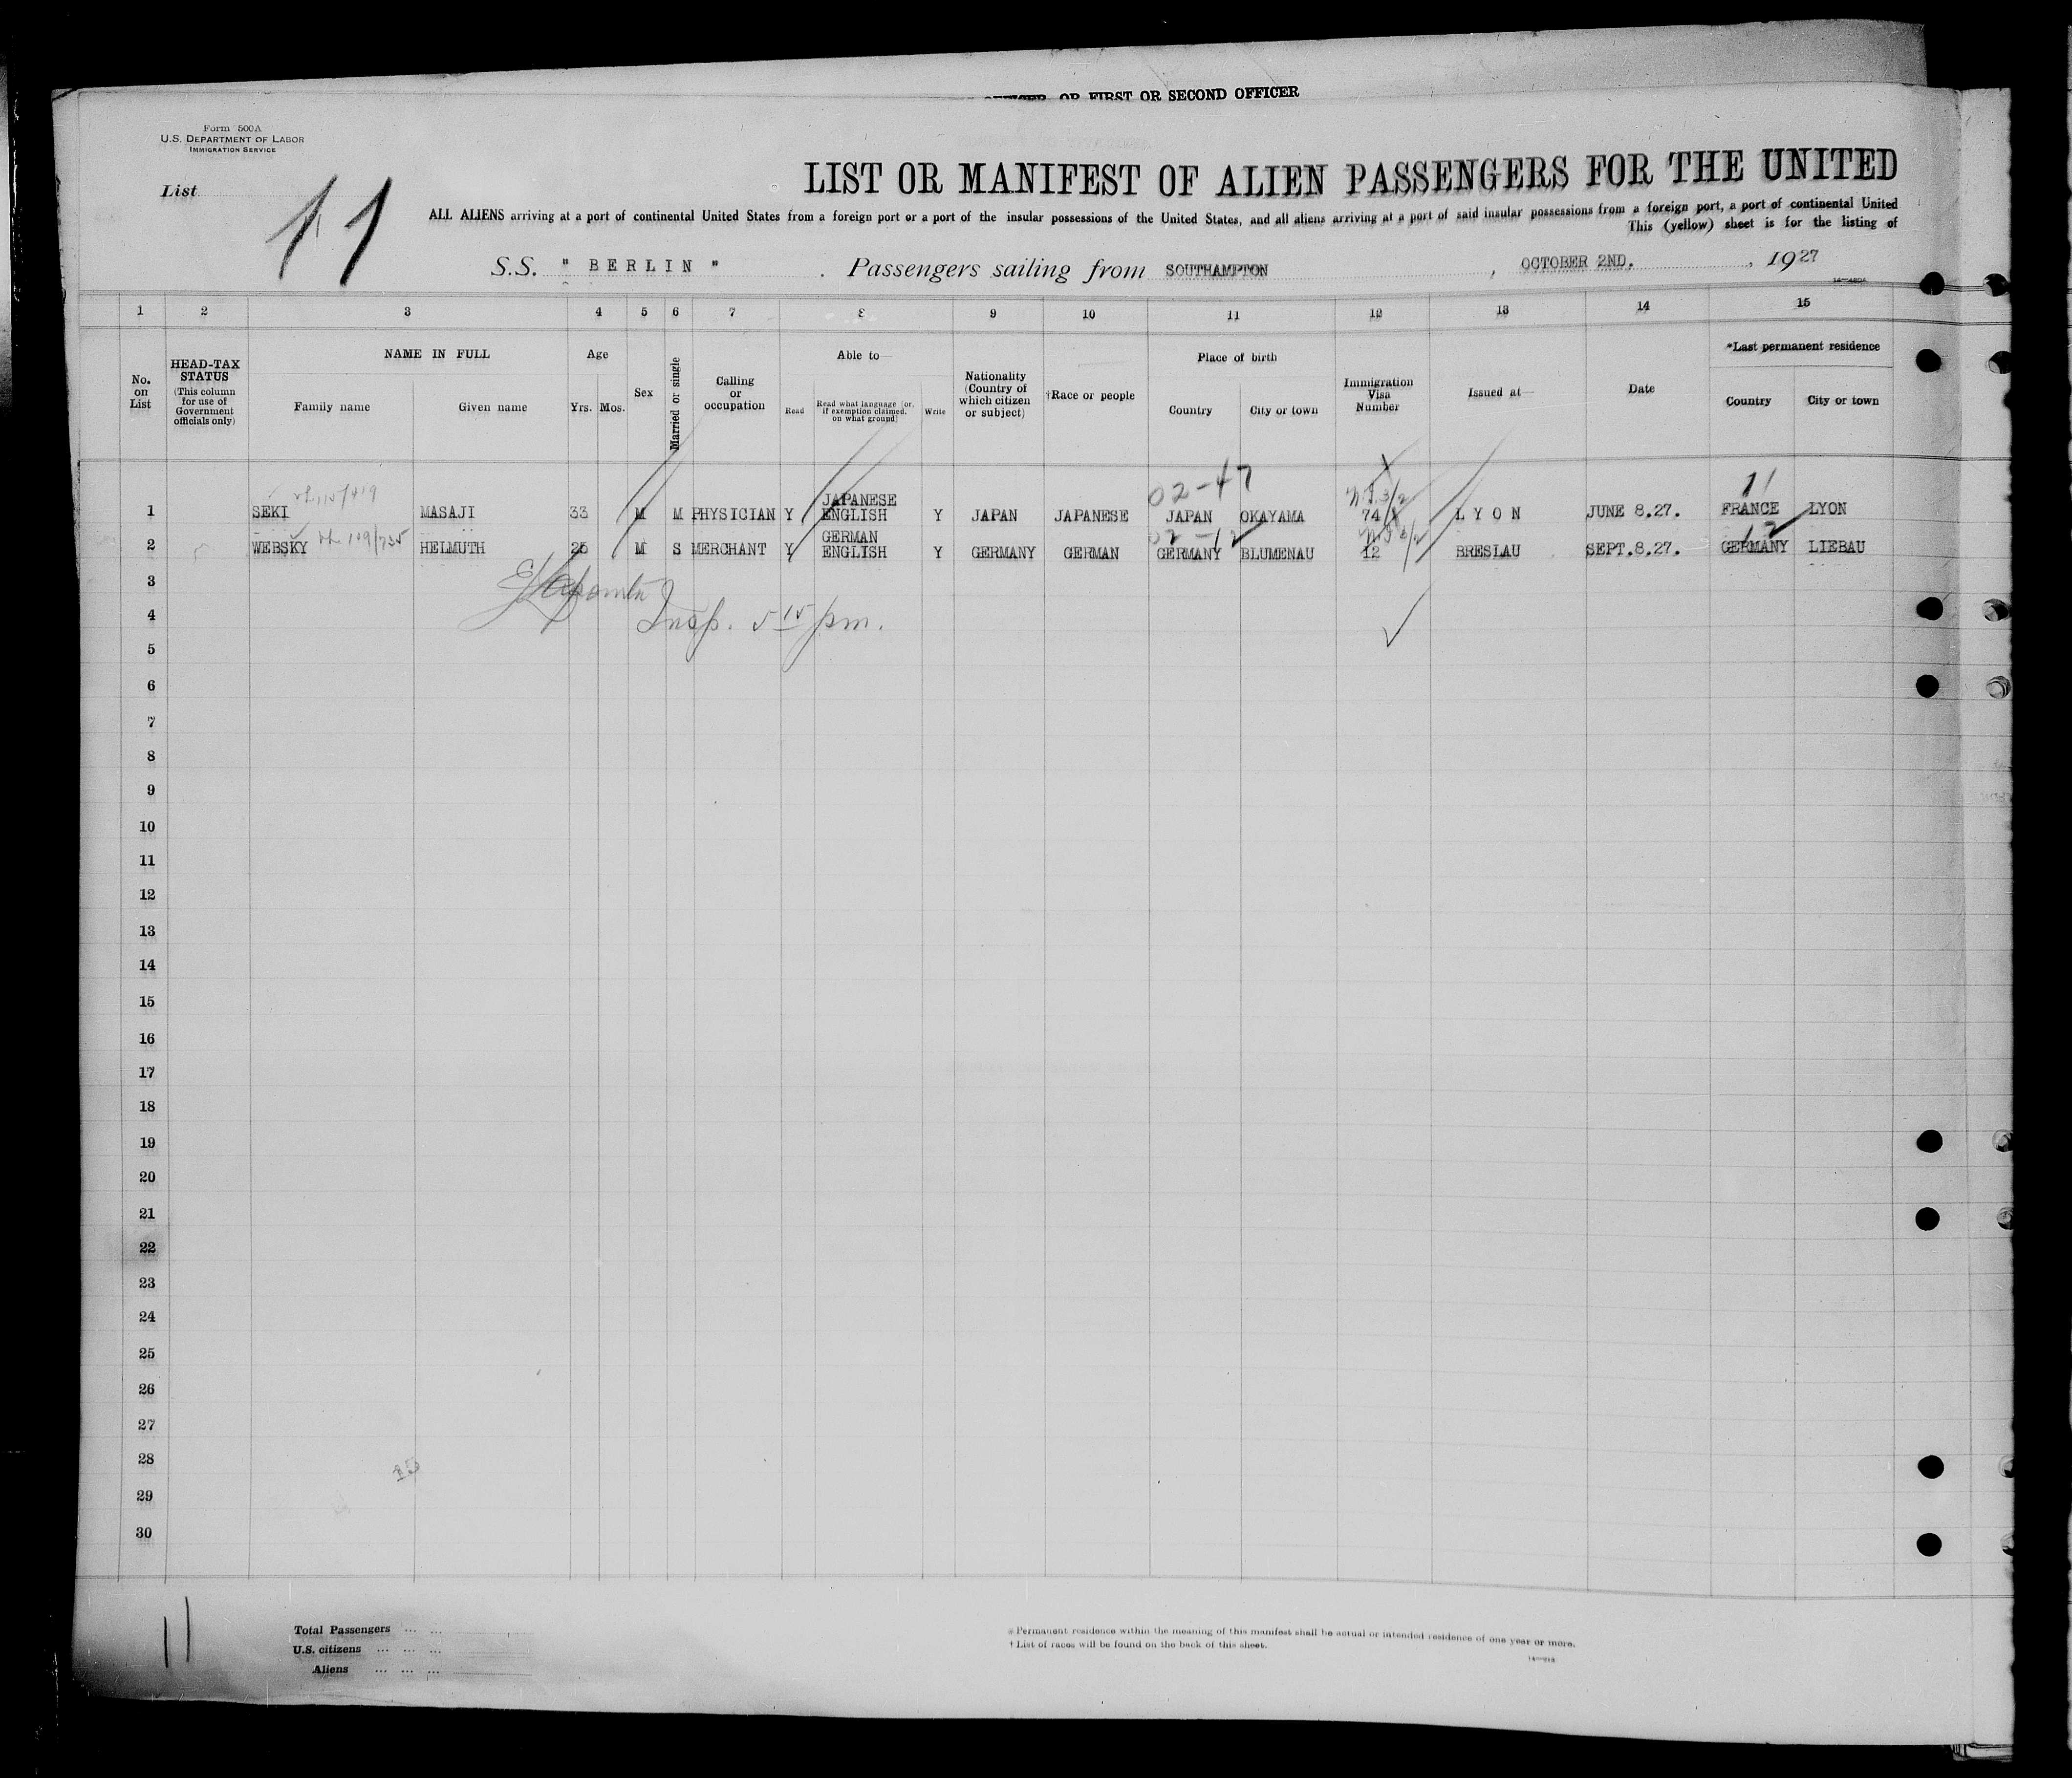 OR FIRST OR SECOND OFFICER
Form 500A
U.S. DEPARTMENT OF LABOR
IMMIGRATION SERVICE
List
11
LIST OR MANIFEST OF ALIEN PASSENGERS FOR THE UNITED
ALL ALIENS arriving at a port of continental United States from a foreign port or a port of the insular possessions of the United States, and all aliens arriving at a port of said insular possessions from a foreign port, a port of continental United
This (yellow) sheet is for the listing of
S.S. " BERLIN " . Passengers sailing from SOUTHAMPTON , OCTOBER 2ND. , 1927
1 2 3 4 5 6 7 8 9 10 11 12 13 14 15
No. on List
HEAD-TAX STATUS
(This column for use of Government officials only)
NAME IN FULL
Family name Given name
Age
Yrs. Mos.
Sex
Married or single
Calling or occupation
Able to—
Read
Read what language [or, if exemption claimed, on what ground]
Write
Nationality (Country of which citizen or subject)
†Race or people
Place of birth
Country City or town
Immigration Visa Number
Issued at—
Date
*Last permanent residence
Country City or town
02-47 11
1 SEKI MASAJI 33 M M PHYSICIAN Y JAPANESE ENGLISH Y JAPAN JAPANESE JAPAN OKAYAMA 74 LYON JUNE 8.27. FRANCE LYON
02-12 12
2 WEBSKY HELMUTH 25 M S MERCHANT Y GERMAN ENGLISH Y GERMANY GERMAN GERMANY BLUMENAU 12 BRESLAU SEPT.8.27. GERMANY LIEBAU
3
4 Insp. 5 15 pm.
5
6
7
8
9
10
11
12
13
14
15
16
17
18
19
20
21
22
23
24
25
26
27
28
29
30
11
Total Passengers ... ...
U.S. citizens ... ... ...
Aliens ... ... ...
*Permanent residence within the meaning of this manifest shall be actual or intended residence of one year or more.
†List of races will be found on the back of this sheet.